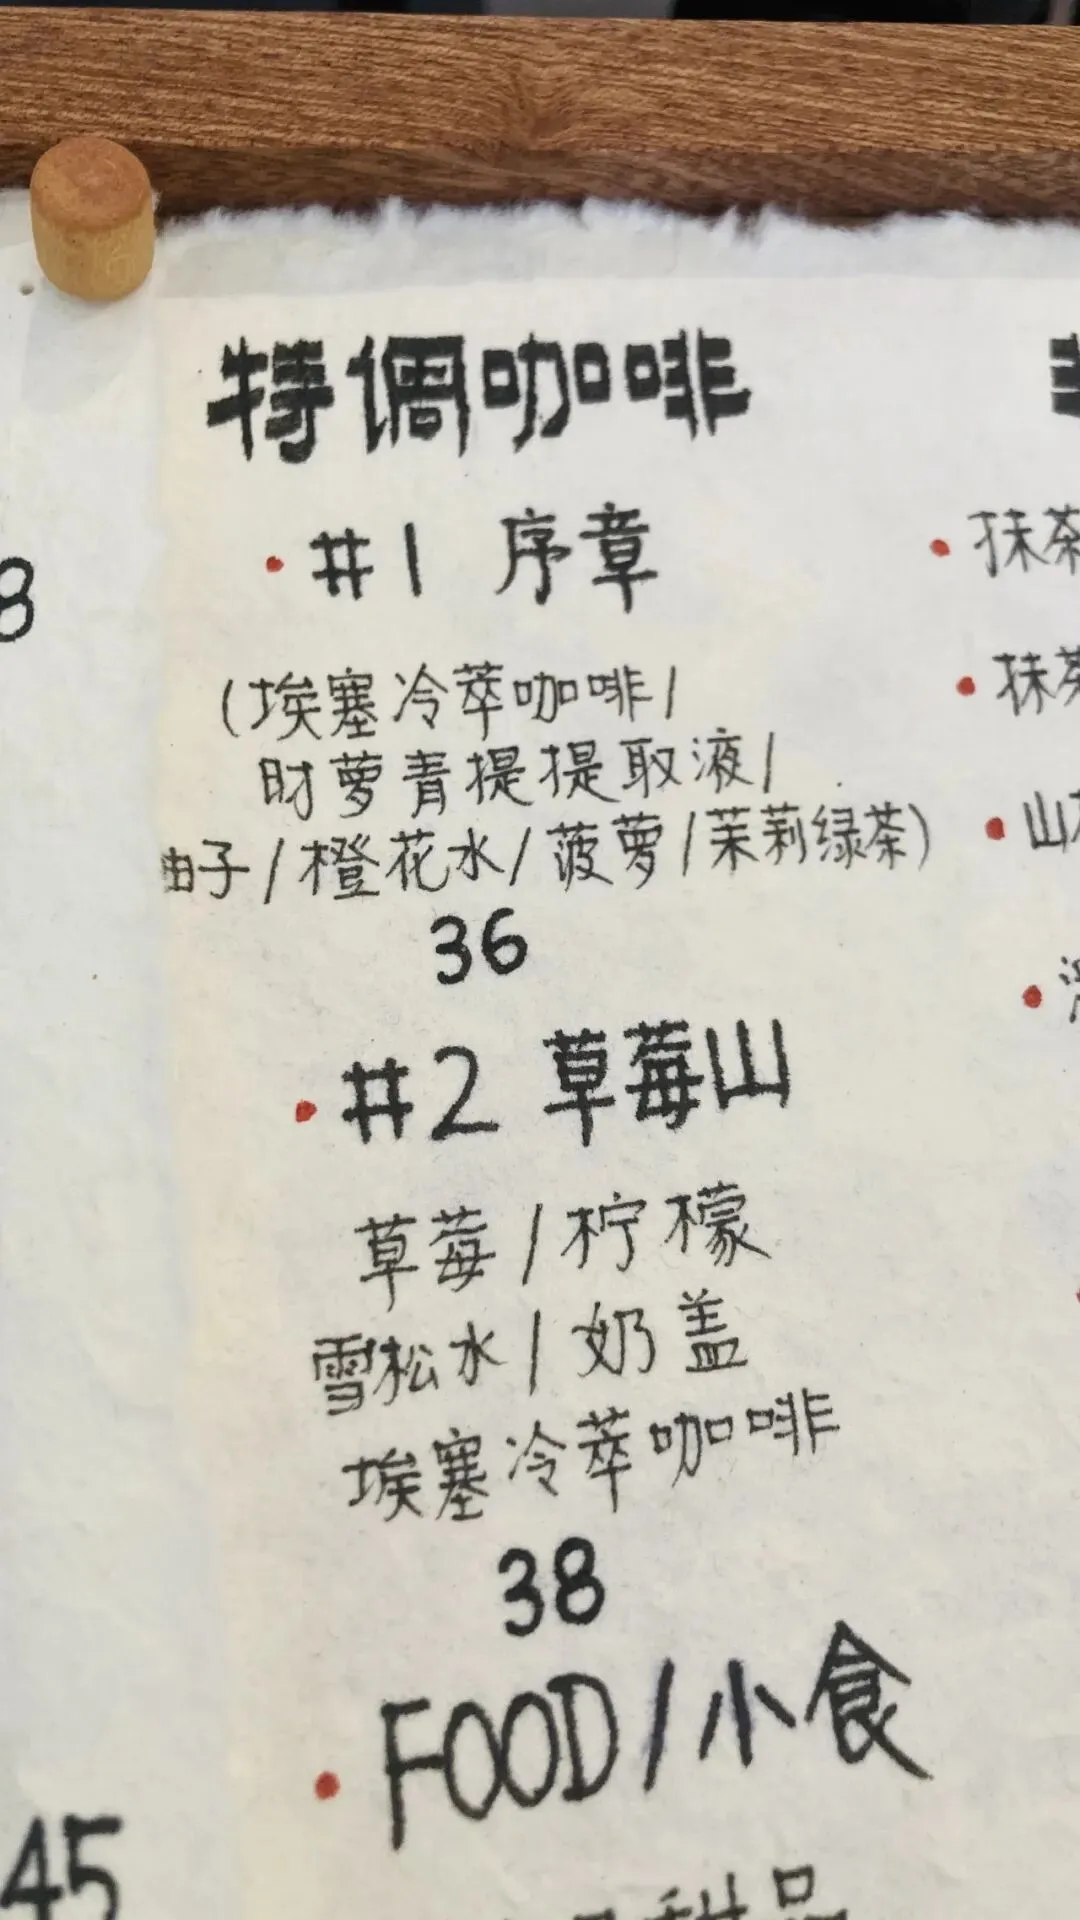 特调咖啡
#1 序章
(埃塞冷萃咖啡/
时萝青提提取液/
柚子/橙花水/菠萝/茉莉绿茶)
36
#2 草莓山
草莓/柠檬
雪松水/奶盖
埃塞冷萃咖啡
38
FOOD/小食
甜品
8
45
抹茶
抹茶
山